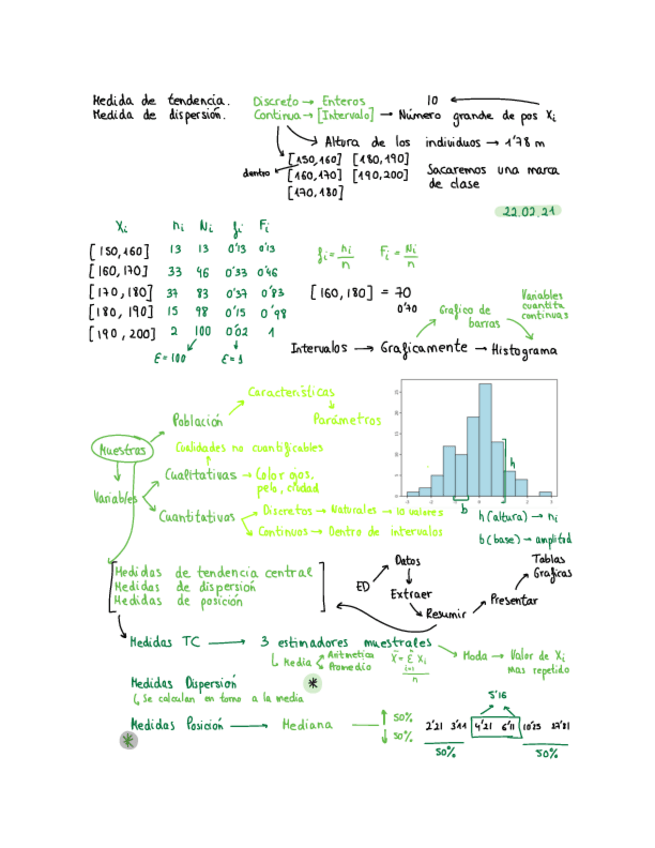 Medida de tendencia. Discreto → Enteros 10
Medida de dispersión. Continua → [Intervalo] → Número grande de pos Xi
Altura de los individuos → 1'78 m
[150,160] [180,190]
dentro [160,170] [190,200] Sacaremos una marca
[170,180] de clase
22.02.21
Xi ni Ni fi Fi
[150,160] 13 13 0'13 0'13
[160,170] 33 46 0'33 0'46
[170,180] 37 83 0'37 0'83
[180,190] 15 98 0'15 0'98
[190,200] 2 100 0'02 1
Σ=100 Σ=1
fi = ni/n Fi = Ni/n
[160,180] = 70
0'70
Variables
cuantita
continuas
Grafico de
barras
Intervalos → Graficamente → Histograma
Características
Población Parámetros
Muestras
Cualidades no cuantificables
Cualitativas → Color ojos,
pelo, ciudad
Variables
Cuantitativas
Discretas → Naturales → 10 valores
Continuos → Dentro de intervalos
h
b
h (altura) → ni
b (base) → amplitud
Medidas de tendencia central
Medidas de dispersión
Medidas de posición
ED
Datos
Extraer
Resumir
Presentar
Tablas
Graficas
Medidas TC → 3 estimadores muestrales
Media Aritmetica
Promedio
Moda → Valor de Xi
mas repetido
Medidas Dispersión *
Se calculan en torno a la media
5'16
Medidas Posición → Mediana ↑ 50%
↓ 50%
2'21 3'44 4'21 6'11 10'25
50% 50%
*